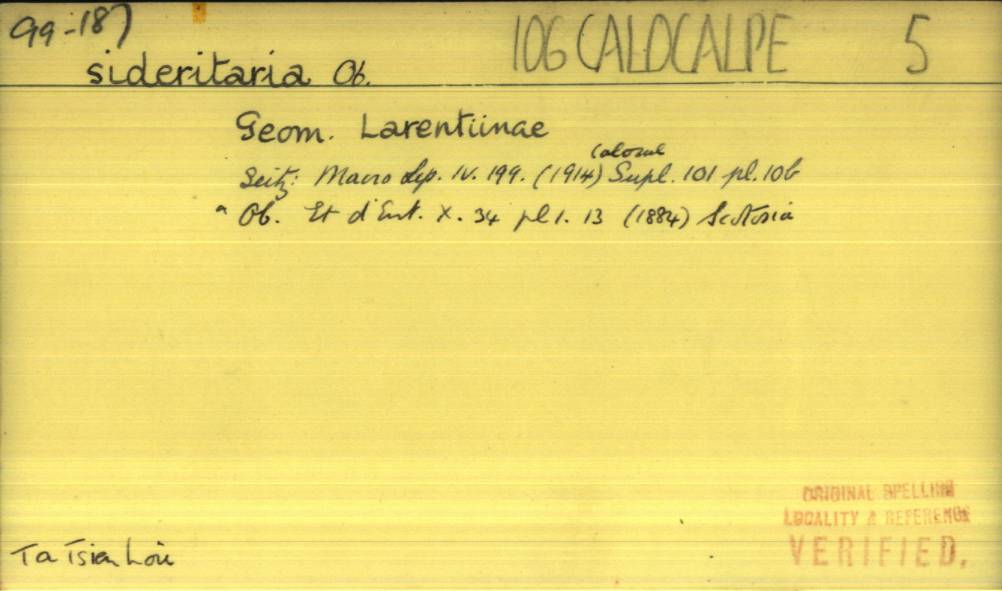 99-187
106 CALOCALPE 5
sideritaria Ob.
Geom. Larentiinae
Seitz: Macro Lep. IV. 199. (1914) Supl. 101 pl. 10b
Ob. Et d'Ent. X. 34 pl 1. 13 (1884) Scotosia
ORIGINAL SPELLING
LOCALITY & REFERENCE
VERIFIED.
Ta Tsien Loû